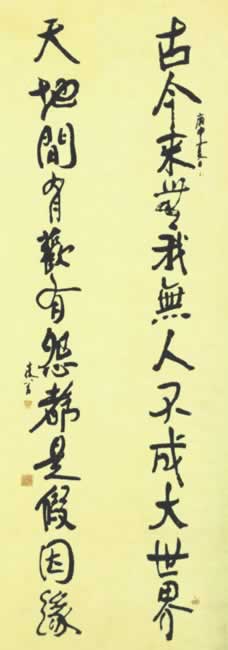 古今來無我無人不成大世界
天地間有歡有怨都是假因緣